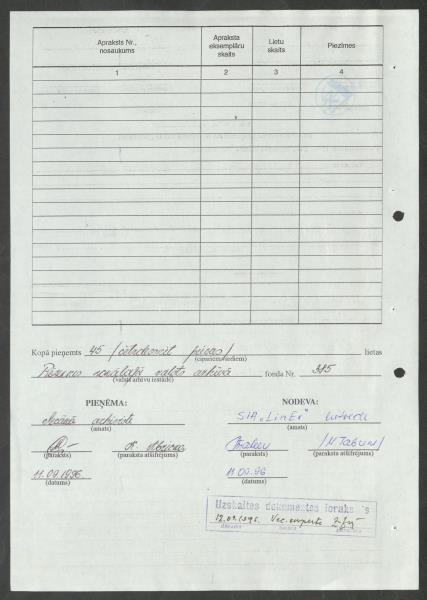 Apraksts Nr., nosaukums
Apraksta eksemplāru skaits
Lietu skaits
Piezīmes
1 2 3 4
Kopā pieņemts 45 /četrdesmit piecas/ lietas
(cipariem/vārdiem)
zonālajā valsts arhīvā fonda Nr. 315
(valsts arhīvu iestāde)
PIEŅĒMA:
arhiviste
(amats)
(paraksts) (paraksta atšifrējums)
11.09.1996
(datums)
NODEVA:
SIA "LinEr"
(amats)
(paraksts) (paraksta atšifrējums)
11.09.96
(datums)
Uzskaites dokumentos
12.09.1996. Vec. eksperte